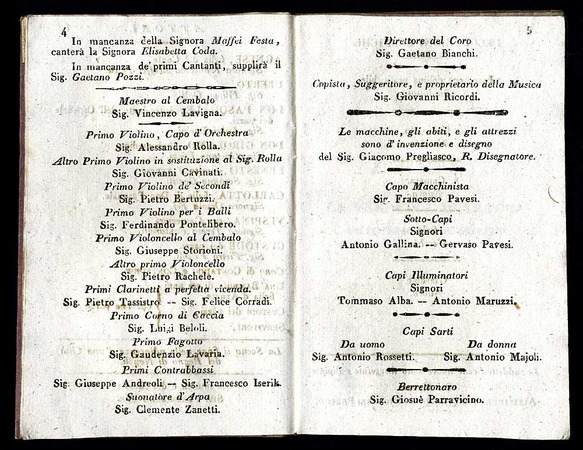 4
In mancanza della Signora Maffei Festa,
canterà la Signora Elisabetta Coda.
In mancanza de' primi Cantanti, supplirà il
Sig. Gaetano Pozzi.
Maestro al Cembalo
Sig. Vincenzo Lavigna.
Primo Violino, Capo d'Orchestra
Sig. Alessandro Rolla.
Altro Primo Violino in sostituzione al Sig. Rolla
Sig. Giovanni Cavinati.
Primo Violino de' Secondi
Sig. Pietro Bertuzzi.
Primo Violino per i Balli
Sig. Ferdinando Pontelibero.
Primo Violoncello al Cembalo
Sig. Giuseppe Storioni.
Altro primo Violoncello
Sig. Pietro Rachele.
Primi Clarinetti a perfetta vicenda.
Sig. Pietro Tassistro -- Sig. Felice Corradi.
Primo Corno di Caccia
Sig. Luigi Beloli.
Primo Fagotto
Sig. Gaudenzio Lavaria.
Primi Contrabbassi
Sig. Giuseppe Andreoli -- Sig. Francesco Iserik.
Suonatore d'Arpa
Sig. Clemente Zanetti.
5
Direttore del Coro
Sig. Gaetano Bianchi.
Copista, Suggeritore, e proprietario della Musica
Sig. Giovanni Ricordi.
Le macchine, gli abiti, e gli attrezzi
sono d'invenzione e disegno
del Sig. Giacomo Pregliasco, R. Disegnatore.
Capo Macchinista
Sig. Francesco Pavesi.
Sotto-Capi
Signori
Antonio Gallina. -- Gervaso Pavesi.
Capi Illuminatori
Signori
Tommaso Alba. -- Antonio Maruzzi.
Capi Sarti
Da uomo Da donna
Sig. Antonio Rossetti. Sig. Antonio Majoli.
Berrettonaro
Sig. Giosuè Parravicino.